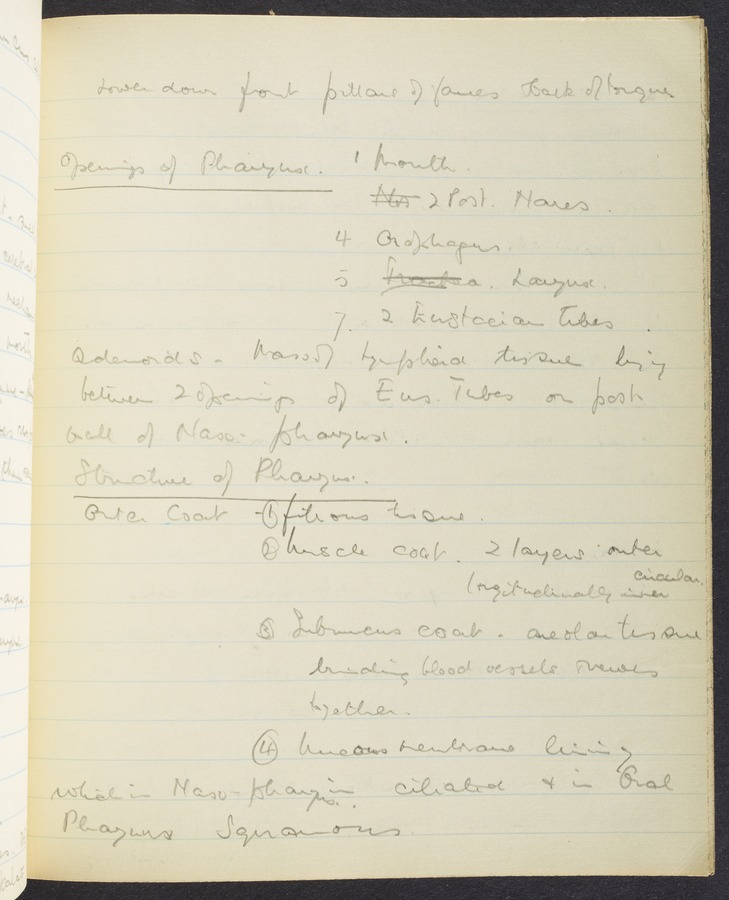 Lower down front pillars of fauces Back of tongue
Openings of Pharynx. 1 Mouth.
2 Post. Nares.
4 Oesphagus.
5 Trachea. Larynx.
7. 2 Eustacian Tubes.
Adenoids - Mass of lymphoid tissue lying
between 2 openings of Eus. Tubes on post
wall of Naso-pharynx.
Structure of Pharynx.
Outer Coat - ① fibrous tissue.
② Muscle coat. 2 layers outer
longitudinally inner circular.
③ Submucus coat. areolar tissue
binding blood vessels nerves
together.
④ Mucous membrane lining
which in Naso-pharynx ciliated & in Oral
Pharynx Squamous.